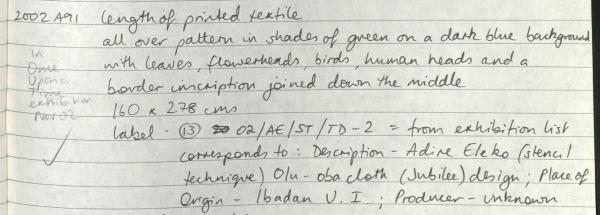 2002 A91 length of printed textile
all over pattern in shades of green on a dark blue background
with leaves, flowerheads, birds, human heads and a
border inscription joined down the middle
160 x 278 cms
label - 13 02/AE/ST/TD-2 = from exhibition list
corresponds to: Description - Adire Eleko (stencil
technique) Olu-oba cloth (Jubilee) design; Place of
Origin - Ibadan U.I.; Producer - unknown
In
Once
Upon a
Time
exhibition
Nov 02